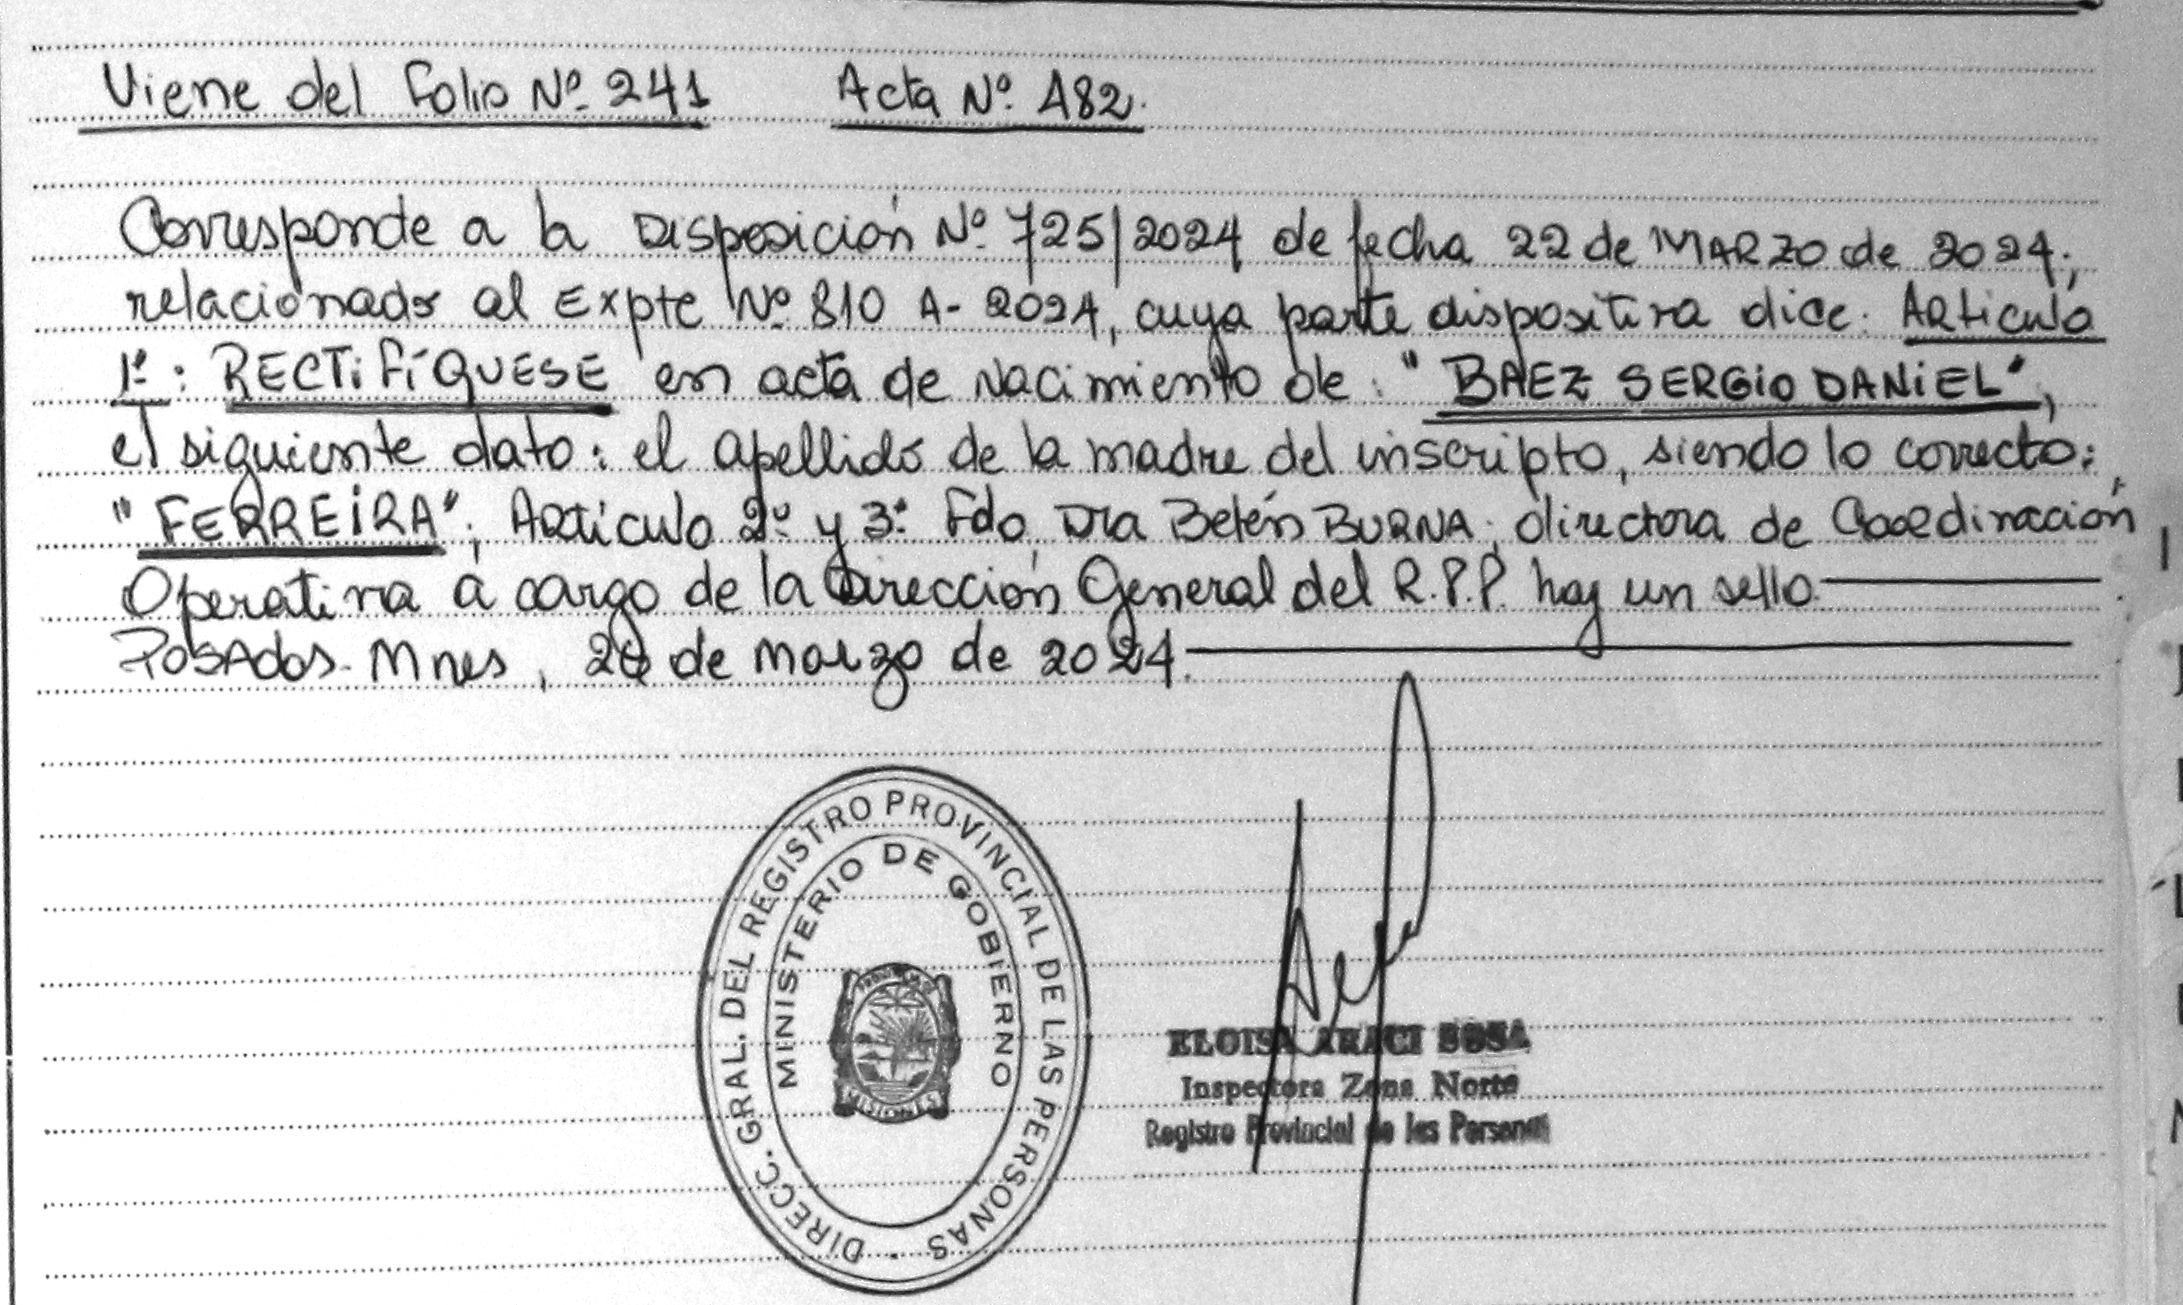 Viene del Folio Nº 241 Acta Nº 482.
Corresponde a la Disposición Nº 725/2024 de fecha 22 de MARZO de 2024;
relacionado al Expte Nº 810 A- 2024, cuya parte dispositiva dice: Artículo
1º: RECTIFÍQUESE en acta de Nacimiento de: "BAEZ SERGIO DANIEL",
el siguiente dato: el apellido de la madre del inscripto, siendo lo correcto:
"FERREIRA"; Artículo 2º y 3º Fdo Dra Belén BURNA, directora de Coordinación
Operativa a cargo de la Dirección General del R.P.P. hay un sello
Posadas. Mnes, de marzo de 2024.
DIRECC. GRAL. DEL REGISTRO PROVINCIAL DE LAS PERSONAS
MINISTERIO DE GOBIERNO
MISIONES
ELOISA ARACI SOSA
Inspectora Zona Norte
Registro Provincial de las Personas